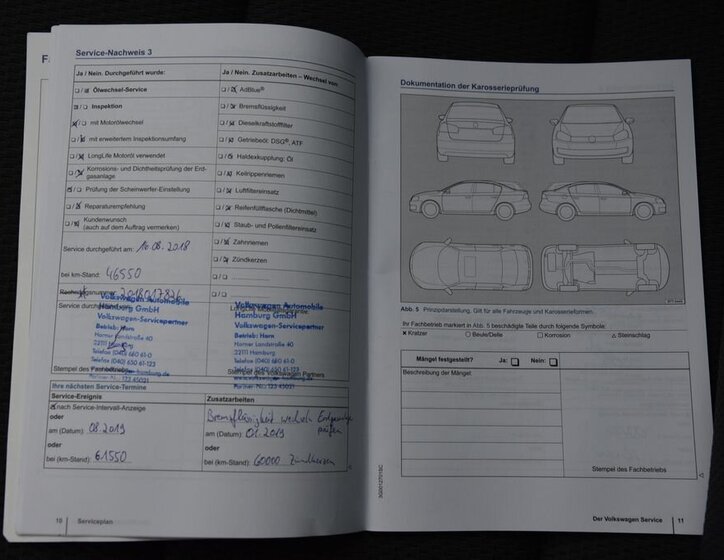 Service-Nachweis 3
Ja / Nein. Durchgeführt wurde:
Ja / Nein. Zusatzarbeiten – Wechsel von:
Ölwechsel-Service
AdBlue®
Inspektion
Bremsflüssigkeit
mit Motorölwechsel
Dieselkraftstofffilter
mit erweitertem Inspektionsumfang
Getriebeöl: DSG®, ATF
LongLife Motoröl verwendet
Haldexkupplung: Öl
Korrosions- und Dichtheitsprüfung der Erd-
gasanlage
Keilrippenriemen
Prüfung der Scheinwerfer-Einstellung
Luftfiltereinsatz
Reparaturempfehlung
Reifenfüllflasche (Dichtmittel)
Kundenwunsch
(auch auf dem Auftrag vermerken)
Staub- und Pollenfiltereinsatz
Zahnriemen
Service durchgeführt am: 16.08.2018
Zündkerzen
bei km-Stand: 46550
Volkswagen Automobile
Hamburg GmbH
Volkswagen-Servicepartner
Betrieb: Horn
Horner Landstraße 40
22111 Hamburg
Telefon (040) 650 61-0
Telefax (040) 650 61-123
Stempel des Fachbetriebs
Volkswagen Automobile
Hamburg GmbH
Volkswagen-Servicepartner
Betrieb: Horn
Horner Landstraße 40
22111 Hamburg
Telefon (040) 650 61-0
Telefax (040) 650 61-123
Stempel des Volkswagen Partners
Ihre nächsten Service-Termine
Service-Ereignis
Zusatzarbeiten
nach Service-Intervall-Anzeige
oder
am (Datum): 08.2019
oder
bei (km-Stand): 61550
Bremsflüssigkeit wechseln
am (Datum): 01.2019
oder
bei (km-Stand): 60000 Zündkerzen
10 Serviceplan
Dokumentation der Karosserieprüfung
Abb. 5 Prinzipdarstellung. Gilt für alle Fahrzeuge und Karosserieformen.
Ihr Fachbetrieb markiert in Abb. 5 beschädigte Teile durch folgende Symbole:
× Kratzer ○ Beule/Delle □ Korrosion △ Steinschlag
Mängel festgestellt? Ja: Nein:
Beschreibung der Mängel:
Stempel des Fachbetriebs
Der Volkswagen Service 11